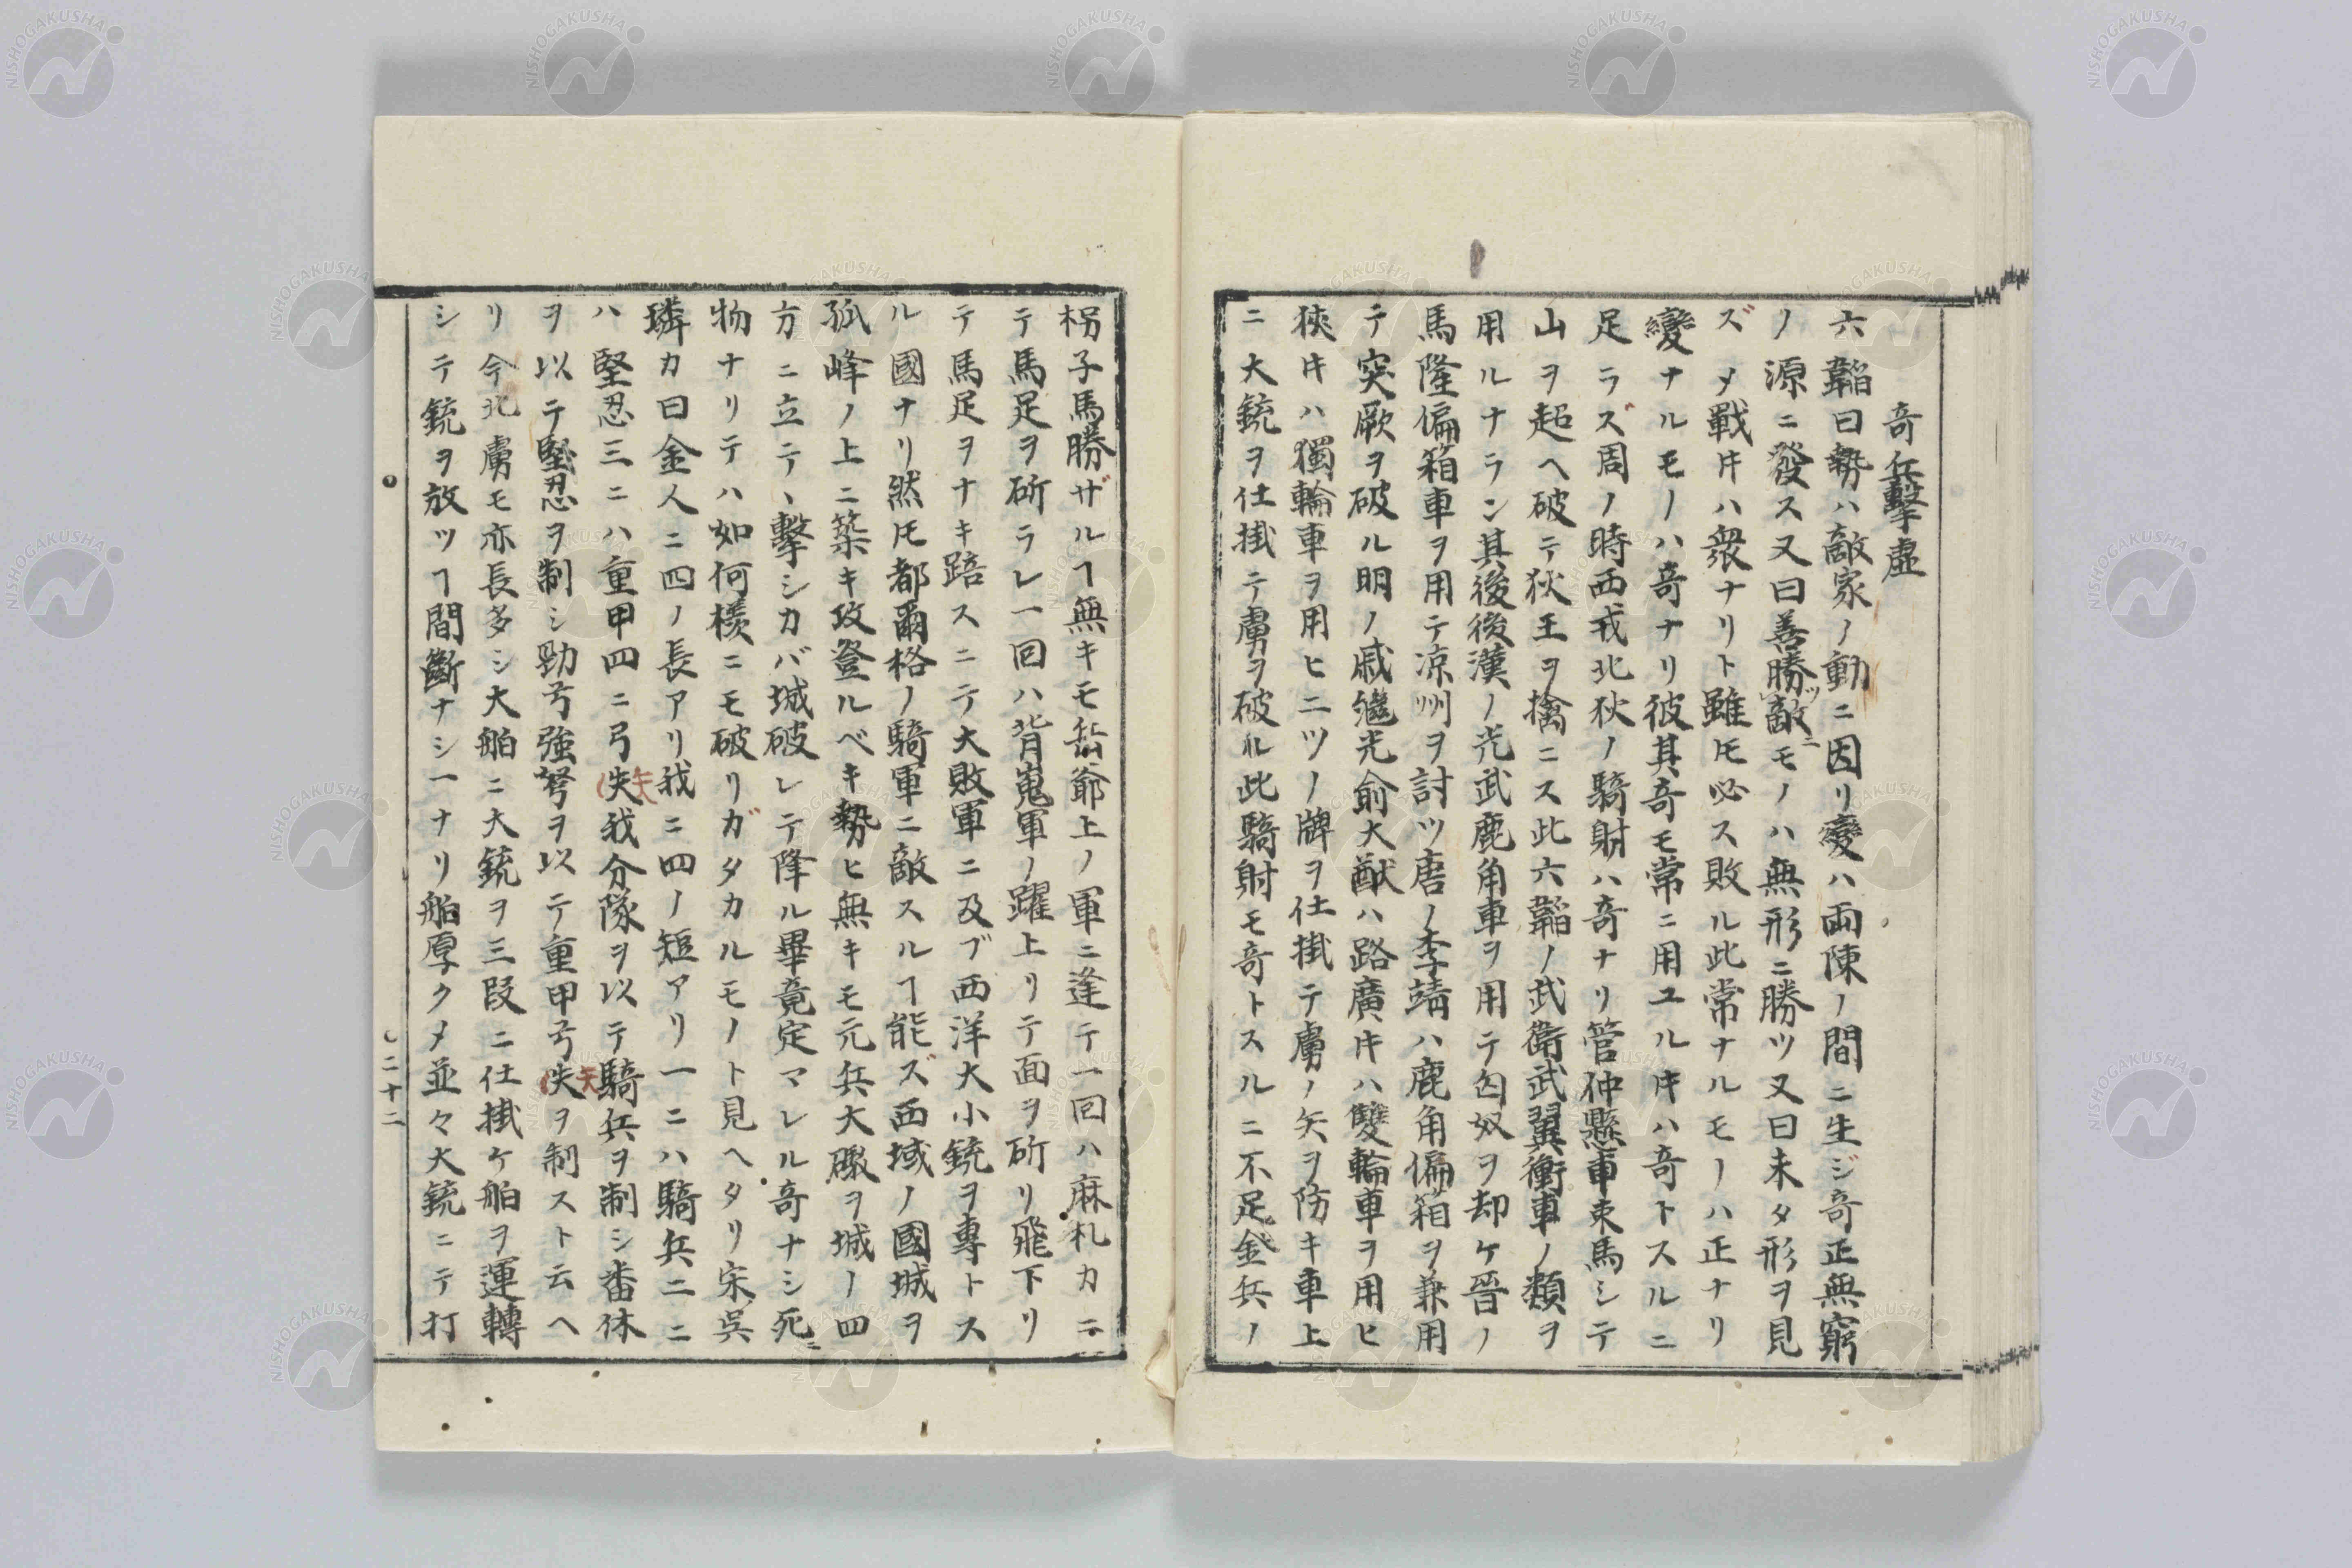 奇兵擊虛
六韜曰勢ハ敵家ノ動ニ因リ變ハ兩陳ノ間ニ生ジ奇正無窮
ノ源ニ發ス又曰善勝ツ敵ニモノハ無形ニ勝ツ又曰未タ形ヲ見
ズメ戰㐧ハ衆ナリト雖𪜈必ス敗ル此常ナルモノハ正ナリ
變ナルモノハ奇ナリ彼其奇モ常ニ用ユル𪜈ハ奇トスルニ
足ラズ周ノ時西戎北狄ノ騎射ハ奇ナリ管仲懸車束馬シテ
山ヲ超ヘ破テ狄王ヲ擒ニス此六韜ノ武衛武翼衝車ノ類ヲ
用ルナラン其後後漢ノ光武鹿角車ヲ用テ匈奴ヲ却ケ晉ノ
馬隆偏箱車ヲ用テ凉州ヲ討ツ唐ノ李靖ハ鹿角偏箱ヲ兼用
テ突厥ヲ破ル明ノ戚繼光俞大猷ハ路廣𪜈ハ雙輪車ヲ用ヒ
狹𪜈ハ獨輪車ヲ用ヒ二ツノ牌ヲ仕掛テ虜ノ矢ヲ防キ車上
ニ大銃ヲ仕掛テ虜ヲ破ル此騎射モ奇トスルニ不足金兵ノ
枴子馬勝ザルヿ無キモ岳爺上ノ軍ニ逢テ一回ハ麻札カニ
テ馬足ヲ斫ラレ一回ハ背嵬軍ノ躍上リテ面ヲ斫リ飛下リ
テ馬足ヲナキ踣スニテ大敗軍ニ及ブ西洋大小銃ヲ專トス
ル國ナリ然𪜈都爾格ノ騎軍ニ敵スルヿ能ズ西域ノ國城ヲ
孤峰ノ上ニ築キ攻登ルベキ勢ヒ無キモ元兵大礮ヲ城ノ四
方ニ立テヽ擊シカバ城破レテ降ル畢竟定マレル奇ナシ死ニ
物ナリテハ如何樣ニモ破リガタカルモノト見ヘタリ宋吳
璘カ曰金人ニ四ノ長アリ我ニ四ノ短アリ一ニハ騎兵二ニ
ハ堅忍三ニハ重甲四ニ弓失矢我分隊ヲ以テ騎兵ヲ制シ番休
ヲ以テ堅忍ヲ制シ勁弓強弩ヲ以テ重甲弓失矢ヲ制スト云ヘ
リ今北虜モ亦長多シ大舶ニ大銃ヲ三段ニ仕掛ケ舶ヲ運轉
シテ銃ヲ放ツヿ間斷ナシ一ナリ舶厚クメ並々大銃ニテ打
二十二
NISHOGAKUSHA